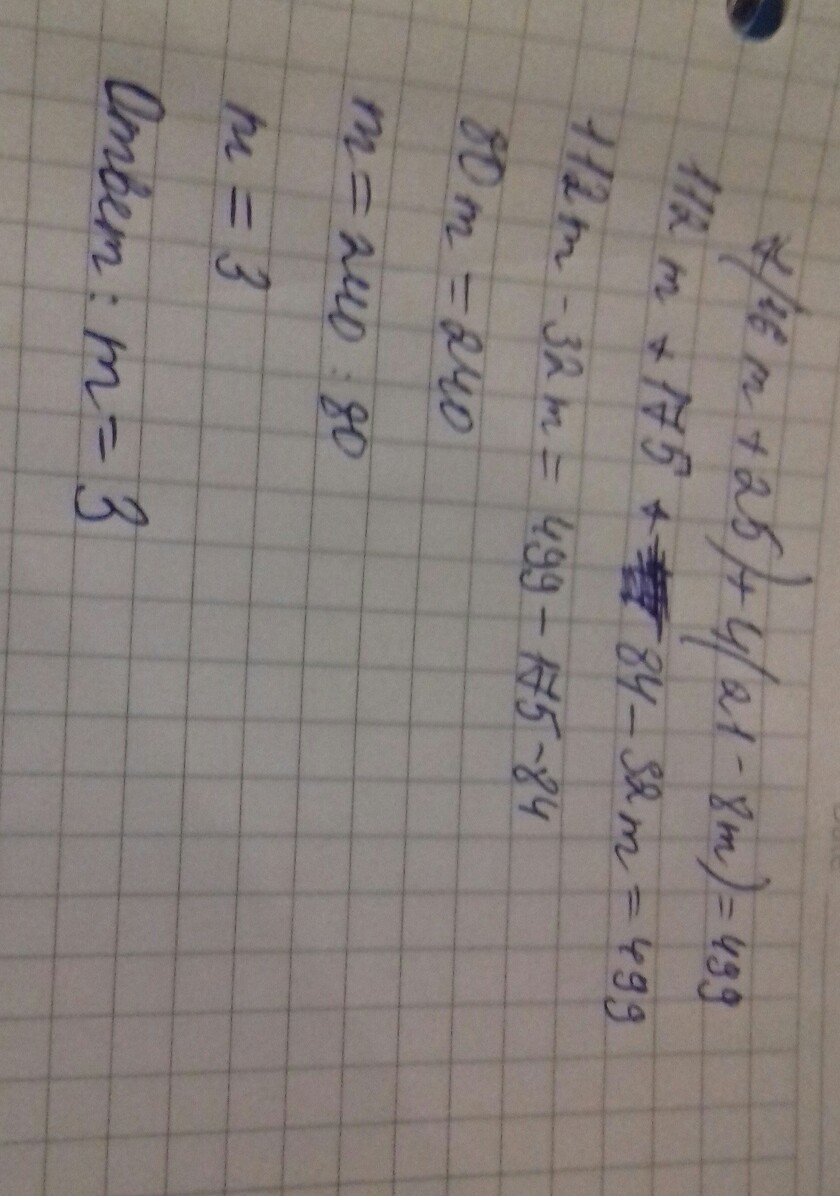 7(16m+25)+4(21-8m)=499
112m+175+84-32m=499
112m-32m=499-175-84
80m=240
m=240:80
m=3
Ответ: m=3